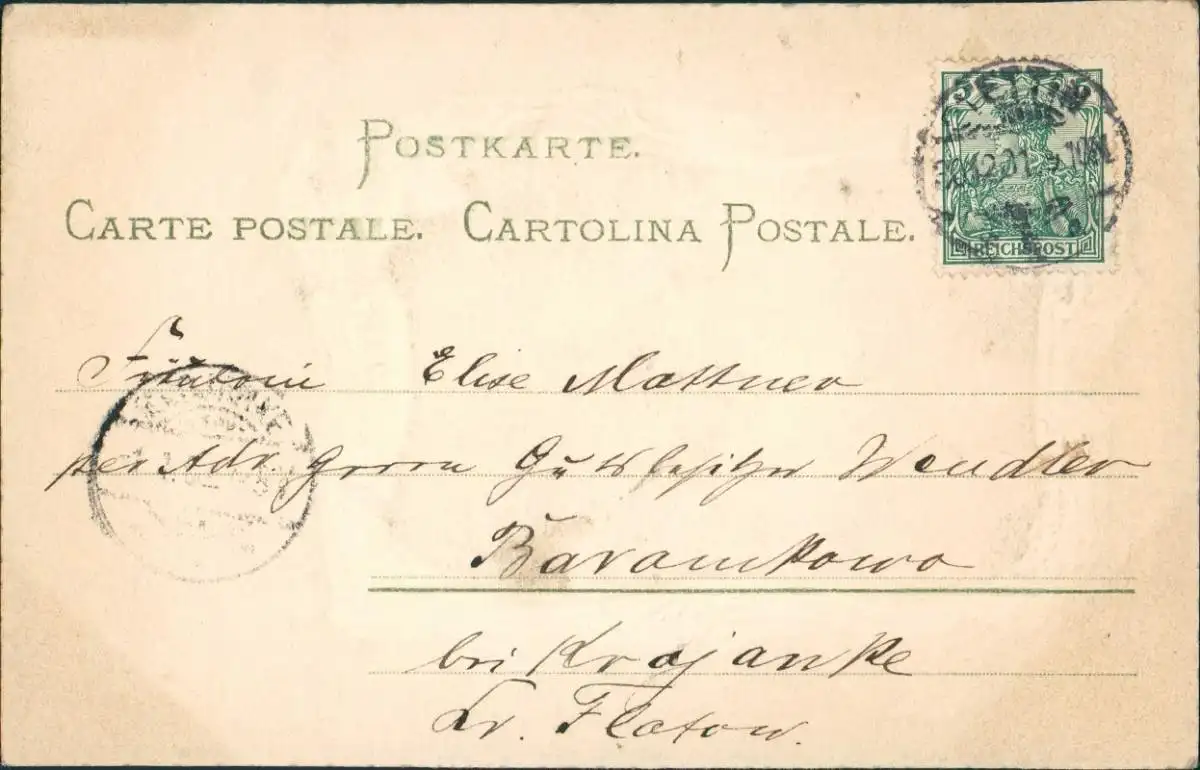 POSTKARTE.
CARTE POSTALE. CARTOLINA POSTALE.
5 5
REICHSPOST
12.01
Fräulein Elise Mattner
per Adr. Herrn Gutsbesitzer Wendler
Baramkowo
bei Krojanke
Kr. Flatow.